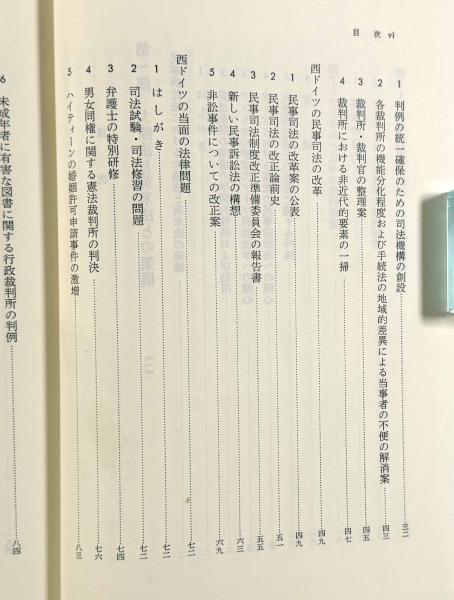 目 次 vi
1 判例の統一確保のための司法機構の創設……三二
2 各裁判所の機能分化程度および手続法の地域的差異による当事者の不便の解消案……四三
3 裁判所・裁判官の整理案……四五
4 裁判所における非近代的要素の一掃……四七
西ドイツの民事司法の改革……四九
1 民事司法の改革案の公表……四九
2 民事司法の改正論前史……五一
3 民事司法制度改正準備委員会の報告書……五五
4 新しい民事訴訟法の構想……六三
5 非訟事件についての改正案……六九
西ドイツの当面の法律問題……七二
1 はしがき……七二
2 司法試験・司法修習の問題……七二
3 弁護士の特別研修……七四
4 男女同権に関する憲法裁判所の判決……七六
5 ハイティーンの婚姻許可申請事件の激増……八三
6 未成年者に有害な図書に関する行政裁判所の判例……八四